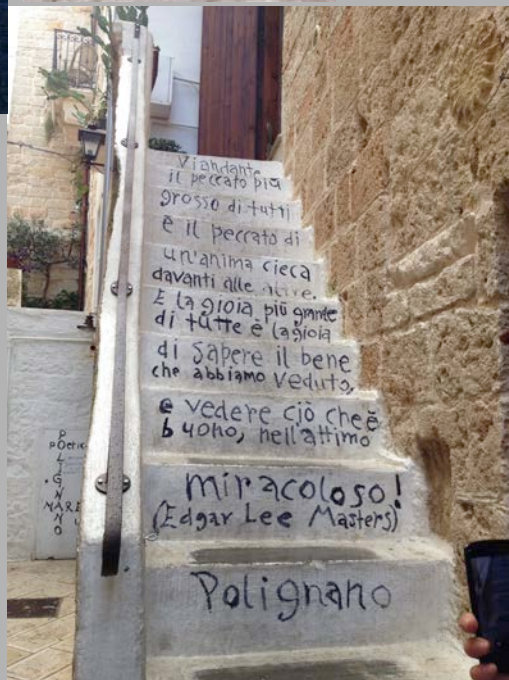 Viandante
il peccato più
grosso di tutti
è il peccato di
un'anima cieca
davanti alle altre.
E la gioia più grande
di tutte è la gioia
di sapere il bene
che abbiamo veduto,
e vedere ciò che è
buono, nell'attimo
miracoloso!
(Edgar Lee Masters)
Polignano
POLIGNANO
MARE